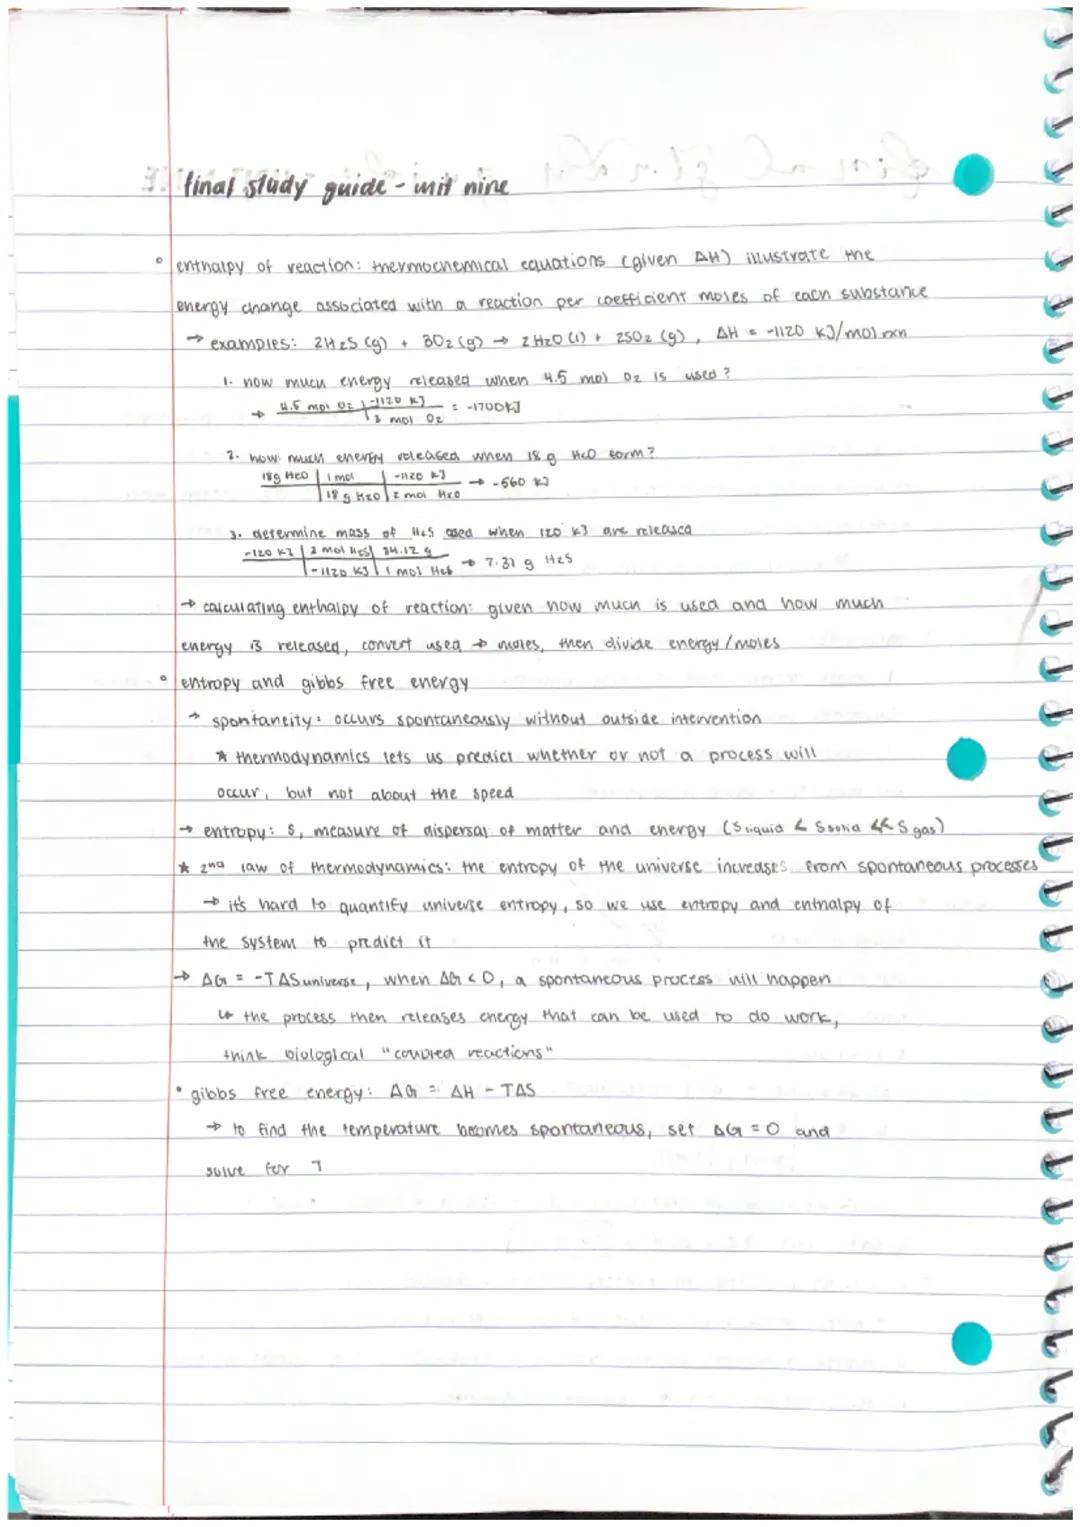 final study guide - unit nine
° enthalpy of reaction: thermochemical equations (given ΔH) illustrate the
energy change associated with a reaction per coefficient moles of each substance
→ examples: 2H2S (g) + 3O2 (g) → 2H2O (l) + 2SO2 (g), ΔH = -1120 kJ/mol rxn
1. how much energy released when 4.5 mol O2 is used?
→ 4.5 mol O2 | -1120 kJ = -1700kJ
| 3 mol O2
2. how much energy released when 18 g H2O form?
18g H2O | 1 mol | -1120 kJ → -560 kJ
| 18 g H2O | 2 mol H2O
3. determine mass of H2S used when 120 kJ are released
-120 kJ | 2 mol H2S | 34.12 g → 7.31 g H2S
| -1120 kJ | 1 mol H2S
→ calculating enthalpy of reaction: given how much is used and how much
energy is released, convert used → moles, then divide energy/moles
° entropy and gibbs free energy
→ spontaneity: occurs spontaneously without outside intervention
* thermodynamics lets us predict whether or not a process will
occur, but not about the speed
→ entropy: S, measure of dispersal of matter and energy (Sliquid < Ssolid << Sgas)
* 2nd law of thermodynamics: the entropy of the universe increases from spontaneous processes
→ it's hard to quantify universe entropy, so we use entropy and enthalpy of
the system to predict it
→ ΔG = -TΔSuniverse, when ΔG < 0, a spontaneous process will happen
↳ the process then releases energy that can be used to do work,
think biological "coupled reactions"
• gibbs free energy: ΔG = ΔH - TΔS
→ to find the temperature becomes spontaneous, set ΔG = 0 and
solve for T